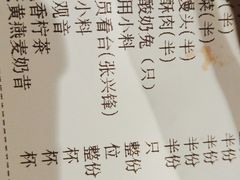 (半)
菜(半)
馒头(半)
酥肉(半)
酸奶兔(只)
用小料
员看台(张兴锋)
小料
观音
香柠茶
黄燕麦奶昔
半份
半份
半份
半份
只
整份
位
杯
杯
杯